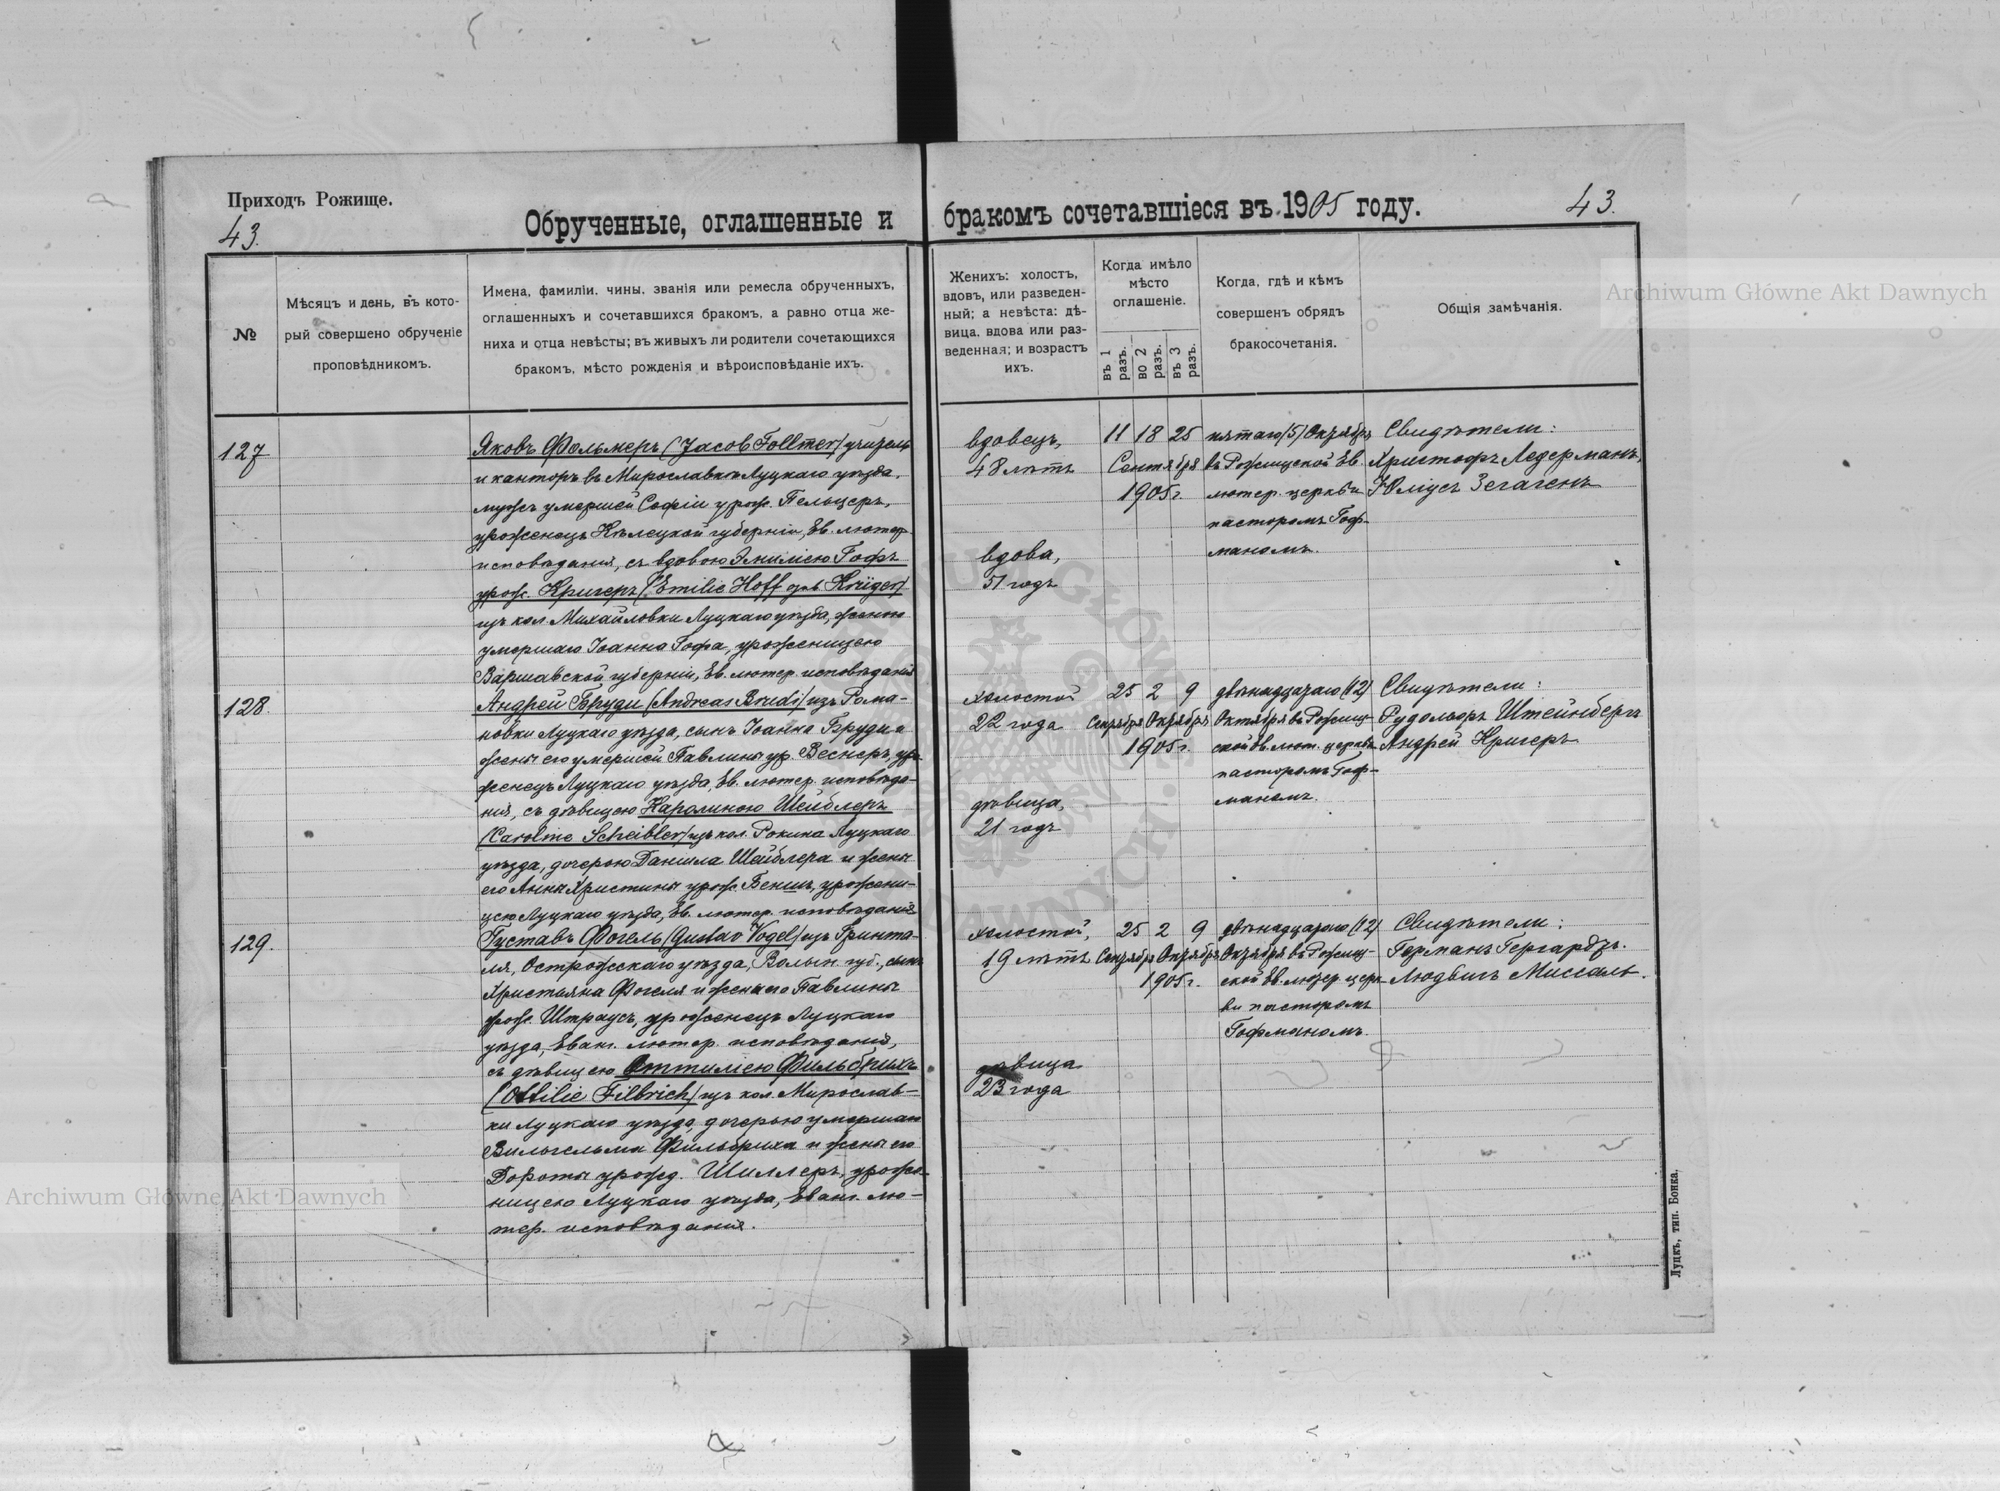 Приходъ Рожище.
43.
Обрученные, оглашенные и
бракомъ сочетавшіеся въ 1905 году.
43.
№
Мѣсяцъ и день, въ кото-
рый совершено обрученіе
проповѣдникомъ.
Имена, фамиліи, чины, званія или ремесла обрученныхъ,
оглашенныхъ и сочетавшихся бракомъ, а равно отца же-
ниха и отца невѣсты; въ живыхъ ли родители сочетающихся
бракомъ, мѣсто рожденія и вѣроисповѣданіе ихъ.
Женихъ: холостъ,
вдовъ, или разведен-
ный; а невѣста: дѣ-
вица, вдова или раз-
веденная; и возрастъ
ихъ.
Когда имѣло
мѣсто
оглашеніе.
въ 1 разъ.
во 2 разъ.
въ 3 разъ.
Когда, гдѣ и кѣмъ
совершенъ обрядъ
бракосочетанія.
Общія замѣчанія.
127
Яковъ Фольмеръ (Jacob Follmer) учитель
и канторъ въ Мирославкѣ Луцкаго уѣзда,
мужъ умершей Софіи урож. Пельцеръ,
уроженецъ Кѣлецкой губерніи, Ев. лютер.
исповѣданія, съ вдовою Эмиліею Гофъ
урож. Кригеръ (Emilie Hoff geb. Krüger)
изъ кол. Михайловки Луцкаго уѣзда, женою
умершаго Іоанна Гофа, уроженицею
Варшавской губерніи, Ев. лютер. исповѣданія
вдовецъ,
48 лѣтъ
вдова,
51 годъ
11 18 25
Сентября
1905 г.
пятаго (5) Октября
въ Рожищской Ев.
лютер. церкви
пасторомъ Гоф-
маномъ.
Свидѣтели:
Христофъ Ледерманъ,
Юліусъ Зегагенъ
128.
Андрей Бруди (Andreas Brudi) изъ Рома-
новки Луцкаго уѣзда, сынъ Іоанна Бруди и
жены его умершей Павлины ур. Веснеръ, уро-
женецъ Луцкаго уѣзда, Ев. лютер. исповѣда-
нія, съ дѣвицею Каролиною Шейблеръ
(Caroline Scheibler) изъ кол. Рокина Луцкаго
уѣзда, дочерью Даніила Шейблера и жены
его Анны Христины урож. Беншъ, урожени-
цею Луцкаго уѣзда, Ев. лютер. исповѣданія
холостой
22 года
дѣвица,
21 годъ
25 2 9
Сентября Октября
1905 г.
двѣнадцатаго (12)
Октября въ Рожищ-
ской Ев. лют. церкви
пасторомъ Гоф-
маномъ.
Свидѣтели:
Рудольфъ Штейнбергъ
Андрей Кригеръ
129.
Густавъ Фогель (Gustav Vogel) изъ Гринта-
ля, Острожскаго уѣзда, Волын. губ., сынъ
Христьяна Фогеля и жены его Павлины
урож. Штраусъ, уроженецъ Луцкаго
уѣзда, Еванг. лютер. исповѣданія,
съ дѣвицею Оттиліею Фильбрихъ
(Ottilie Filbrich) изъ кол. Мирослав-
ки Луцкаго уѣзда, дочерью умершаго
Вильгельма Фильбриха и жены его
Дороты урожд. Шиллеръ, уроже-
ницею Луцкаго уѣзда, Еванг. лю-
тер. исповѣданія.
холостой,
19 лѣтъ
дѣвица
23 года
25 2 9
Сентября Октября
1905 г.
двѣнадцатаго (12)
Октября въ Рожищ-
ской Ев. лютер. церк-
ви пасторомъ
Гофманомъ.
Свидѣтели:
Германъ Гергардтъ.
Людвигъ Миссаль.
Луцкъ, тип. Бонка.
Archiwum Główne Akt Dawnych
Archiwum Główne Akt Dawnych